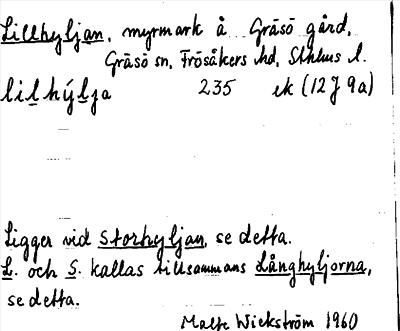 Lillhyljan, myrmark å Gräsö gård,
Gräsö sn, Frösåkers hd, Sthlms l.
lilhýlja 235 ek (12 J 9a)
Ligger vid Storhyljan, se detta.
L. och S. kallas tillsammans Långhyljorna,
se detta.
Malte Wickström 1960